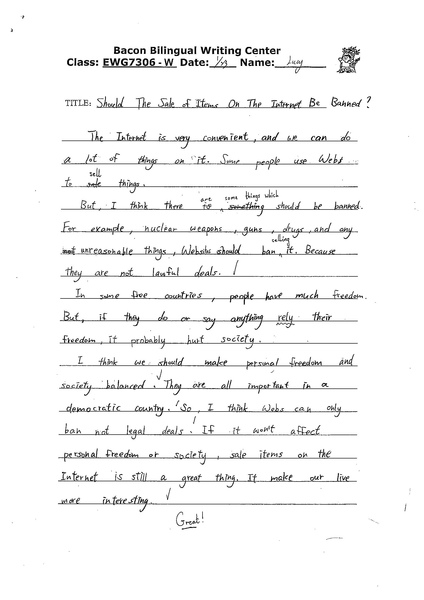 Bacon Bilingual Writing Center
Class: EWG7306 - W Date: 1/23 Name: Lucy
TITLE: Should The Sale of Items On The Internet Be Banned?
The Internet is very convenient, and we can do
a lot of things on it. Some people use Webs
sell
to sale things.
are some things which
But, I think there is something should be banned.
For example, nuclear weapons, guns, drugs, and any
most unreasonable things, Websits should ban it. Because
selling
they are not lawful deals.
In some free countries, people have much freedom.
But, if they do or say anything rely their
freedom, it probably hurt society.
I think we should make personal freedom and
society balanced. They are all important in a
democratic country. So, I think Webs can only
ban not legal deals. If it won't affect
personal freedom or society, sale items on the
Internet is still a great thing. It make our live
more interesting.
Great!